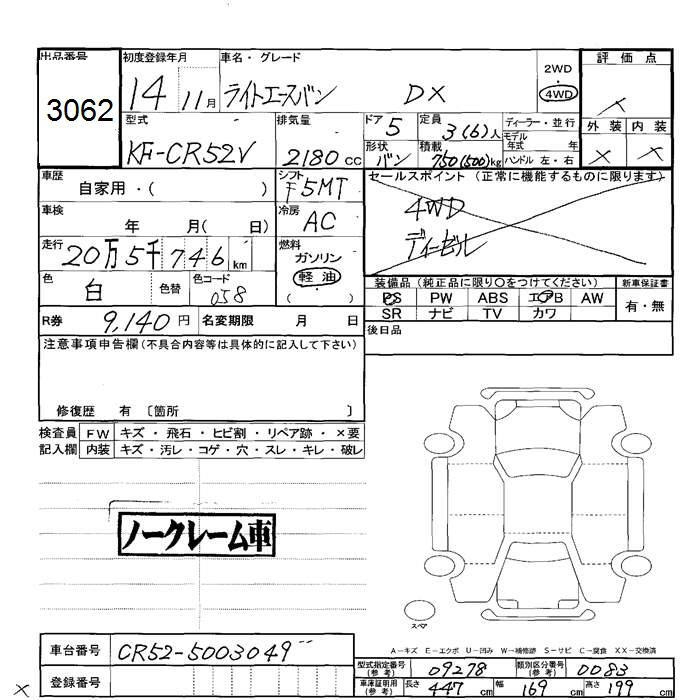 出品番号
3062
初度登録年月
14 11月
車名・グレード
ライトエースバン DX
2WD
・
4WD
評価点
×
外装 内装
× ×
型式
KF-CR52V
排気量
2180 cc
ドア 5
定員 3(6)人
ディーラー・並行
モデル
年式 年
形状 バン
積載 750(500)kg
ハンドル 左・右
車歴
自家用・( )
シフト
F5MT
セールスポイント (正常に機能するものに限ります)
4WD
ディーゼル
車検
年 月( 日)
冷房
AC
走行
20万5千746 km
燃料
ガソリン
軽油
( )
色
白
色替
色コード
058
装備品 (純正品に限り○をつけてください)
新車保証書
PS PW ABS エアB AW
SR ナビ TV カワ
有・無
R券 9,140円 名変期限 月 日
後日品
注意事項申告欄 (不具合内容等は具体的に記入して下さい)
修復歴 有 〔箇所 〕
検査員 FW キズ・飛石・ヒビ割・リペア跡・×要
記入欄 内装 キズ・汚レ・コゲ・穴・スレ・キレ・破レ
ノークレーム車
スペア
A-キズ E-エクボ U-凹み W-補修跡 S-サビ C-腐食 XX-交換済
車台番号 CR52-5003049
登録番号
型式指定番号
(参考)
09278
類別区分番号
(参考)
0083
車庫証明用
(参考)
長さ 447 cm 幅 169 cm 高さ 199 cm
×